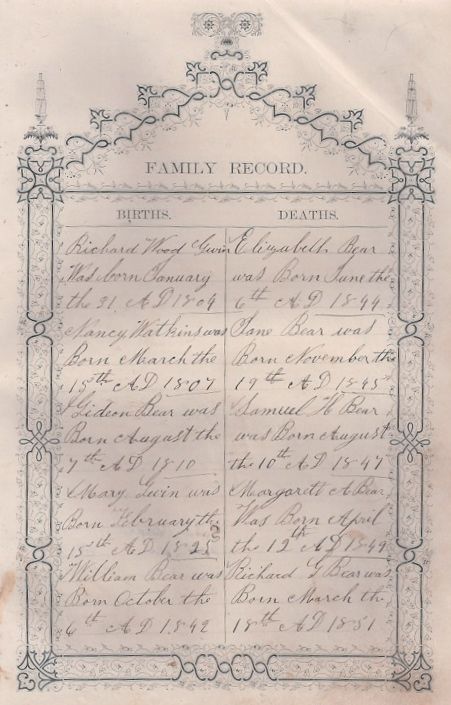 FAMILY RECORD.
BIRTHS.
Richard Wood Gwin
Was born January
the 31 AD 1804
Nancy Watkins was
Born March the
15th AD 1807
Gideon Bear was
Born August the
7th AD 1810
Mary Gwin was
Born February the
15th AD 1825
William Bear was
Born October the
6th AD 1842
DEATHS.
Elizabeth Bear
was Born June the
6th AD 1844
Jane Bear was
Born November the
19th AD 1845
Samuel H Bear
was Born August
the 10th AD 1847
Margarett A Bear
Was Born April
the 12th AD 1849
Richard G Bear was
Born March the
18th AD 1851